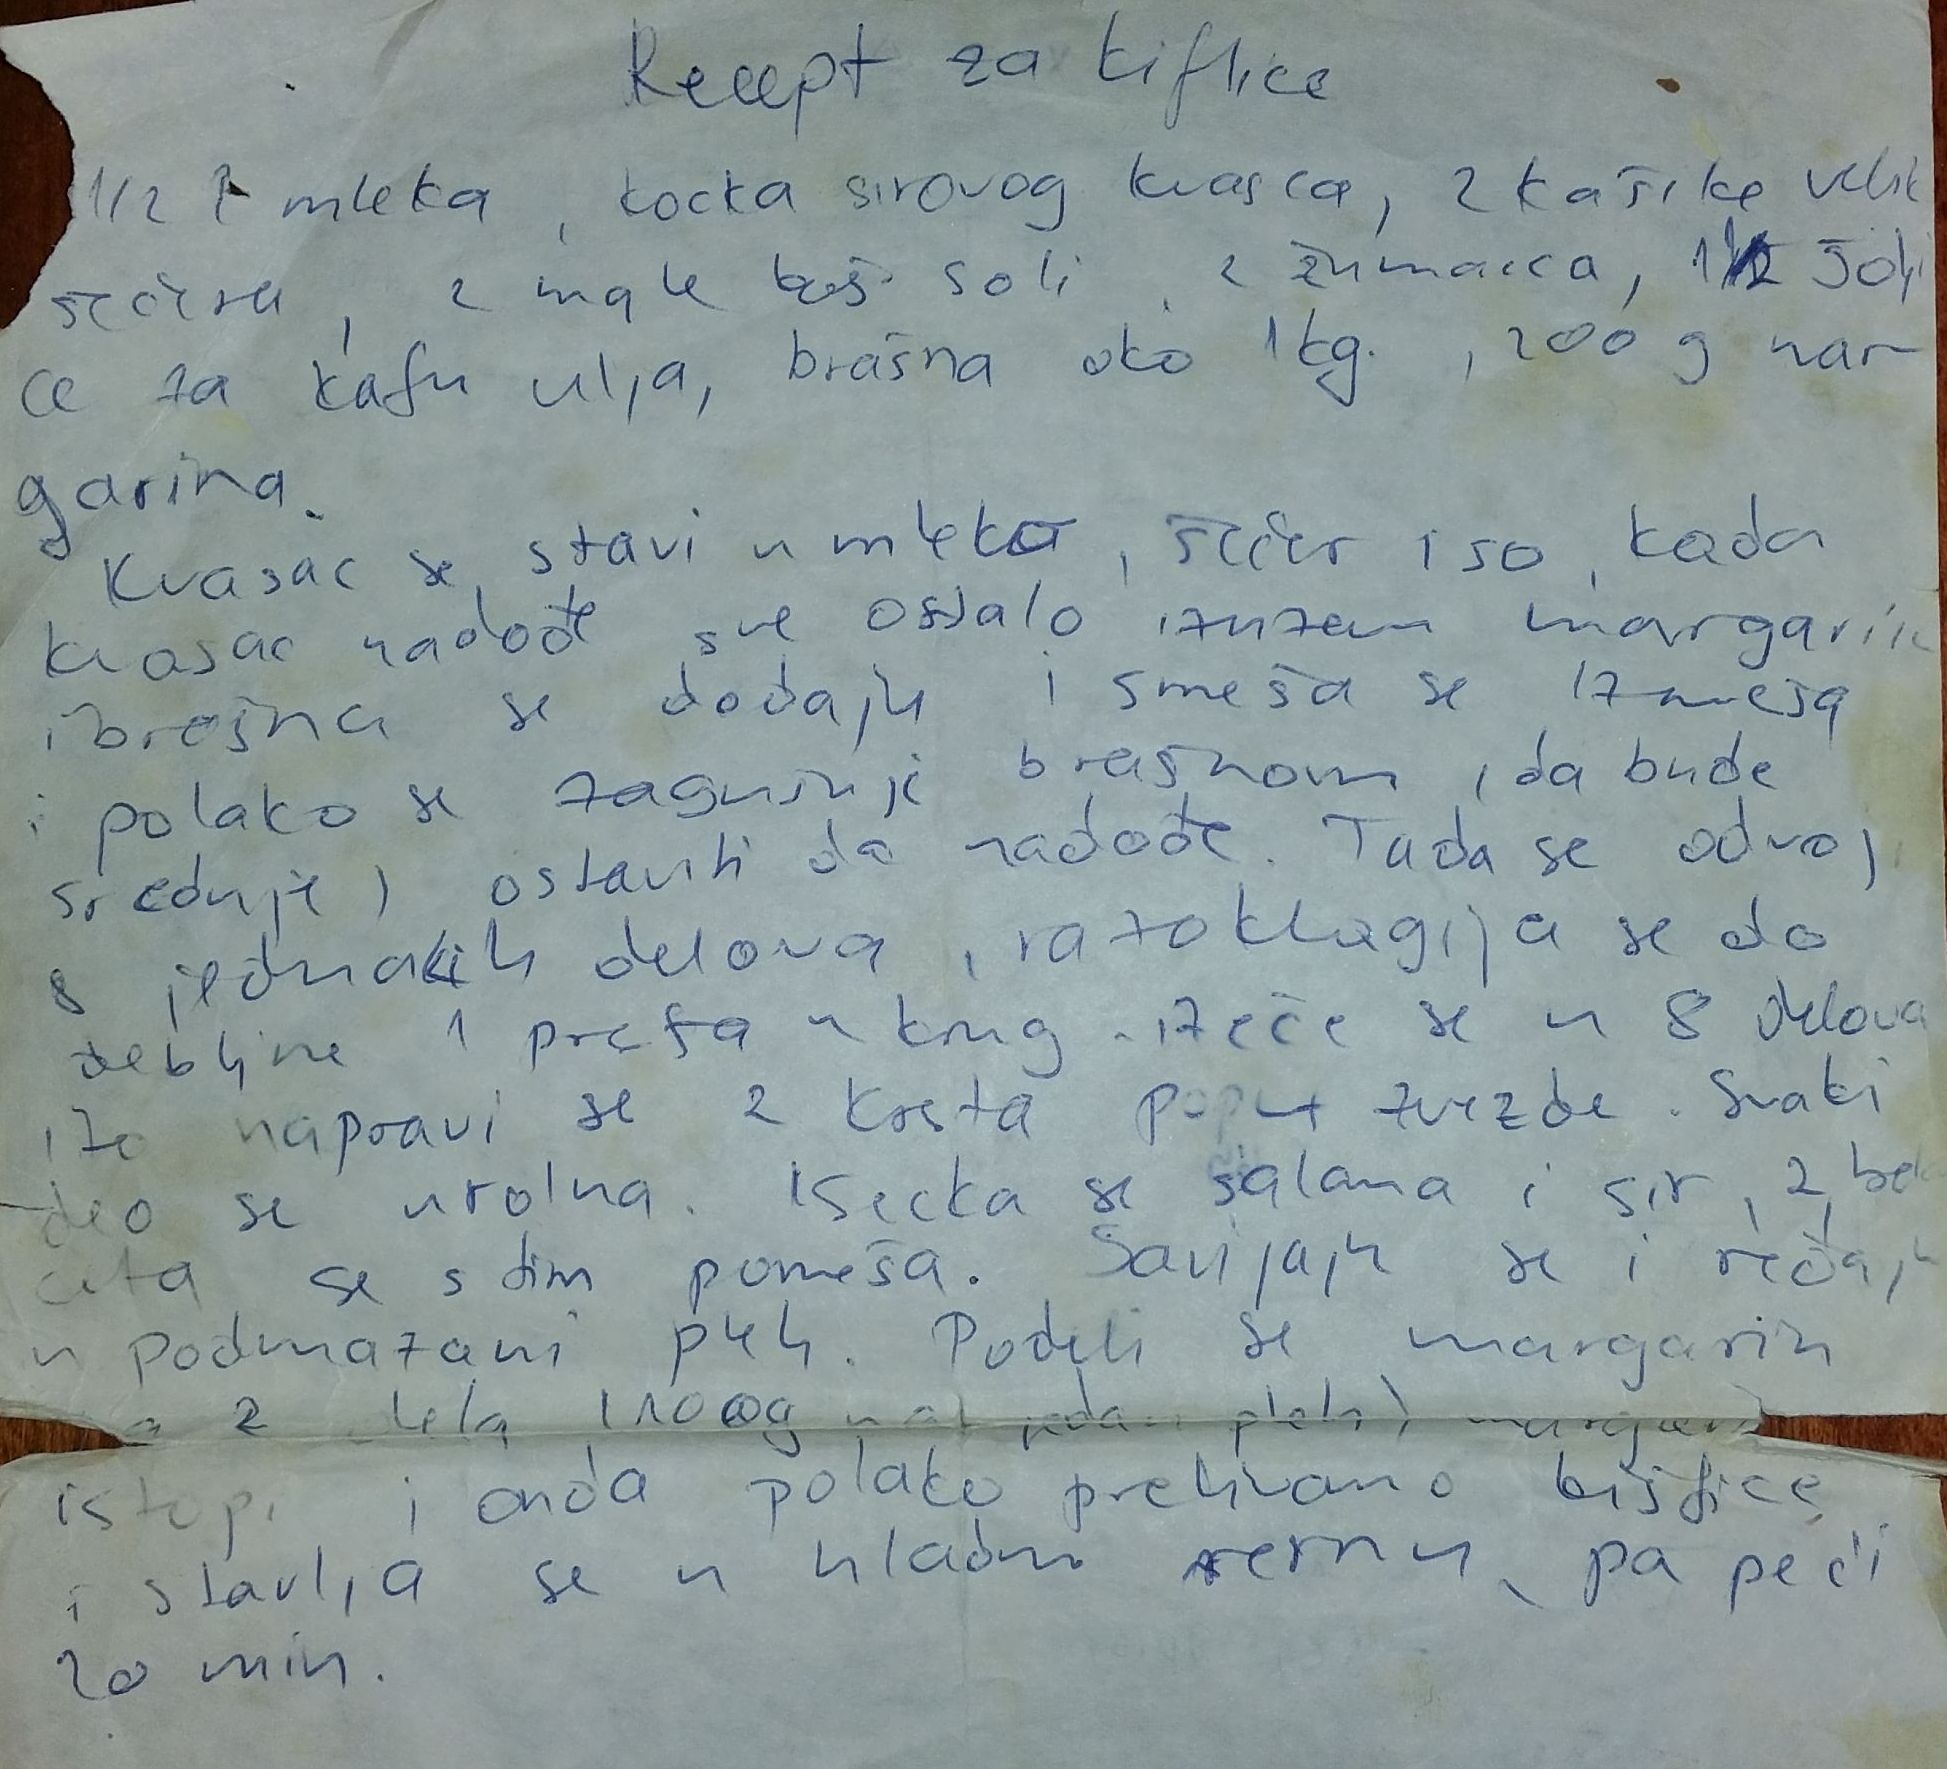 Recept za kiflice
1/2 l mleka, kocka sirovog kvasca, 2 kašike velik
šećera, 2 male kaš. soli, 2 žumanca, 1 šolji
ce za kafu ulja, brašna oko 1 kg., 200 g mar
garina.
Kvasac se stavi u mleko, šećer i so, kada
kvasac nadođe sve ostalo izuzev margarin
i brašna se dodaju i smeša se izmeša
i polako se zagušnje brašnom, da bude
srednje, ostaviti da nadođe. Tada se odvoj
8 jednakih delova, razoklagija se do
debljine 1 prsta u krug. izeče se u 8 delova
napravi se 2 krsta poput zvezde. Svaki
deo se urolna. Isecka se salama i sir, 2 bela
ceta se s tim pomeša. Savijaju se i ređaju
u podmazani pleh. Podeli se margarin
2 dela (100g jedan pleh) margarin
istopi i onda polako prelivamo kiflice
i stavlja se u hladnu rernu, pa peći
20 min.